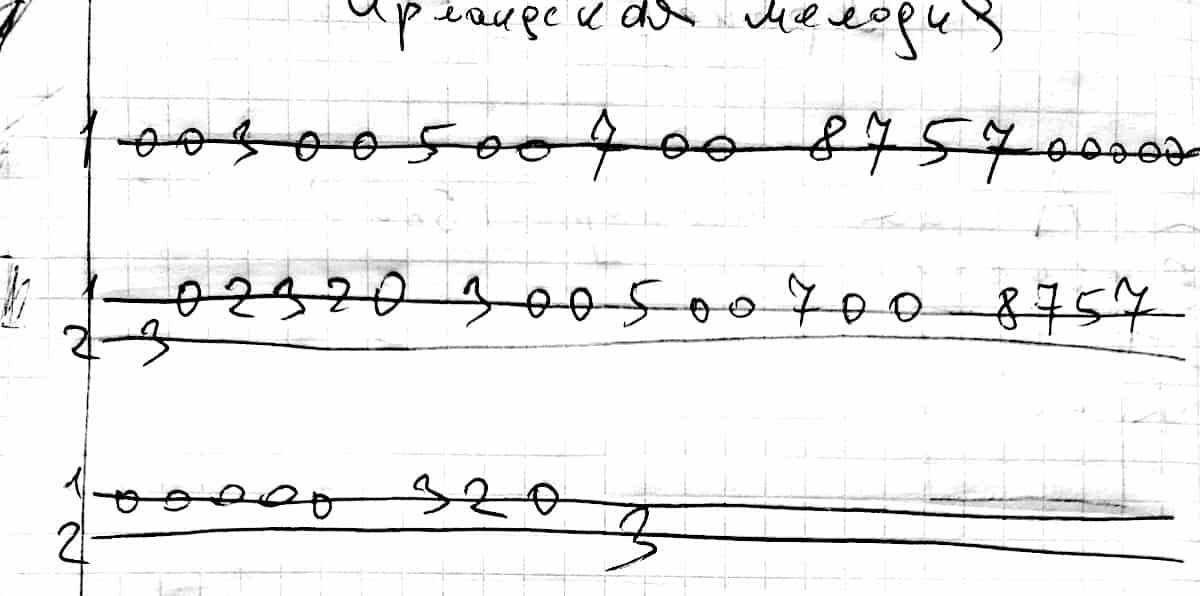 Ирландская мелодия
1 0 0 3 0 0 5 0 0 7 0 0 8 7 5 7 0 0 0 0 0
1 0 2 3 2 0 3 0 0 5 0 0 7 0 0 8 7 5 7
2 3
1 0 0 0 0 0 3 2 0
2 3